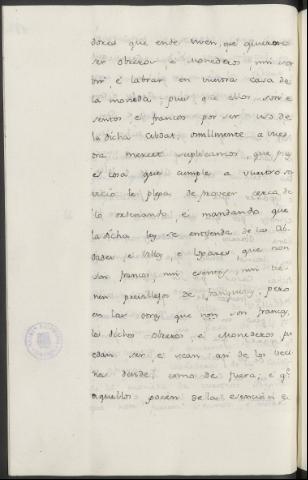 dores que ende viven, que quieren
ser obreros, e Monederos, nin ser
vir, e labrar en vuestra casa de
la moneda, pues que ellos son e
sentos e francos por ser vs.os de
la dicha cibdat, omilmente a vues
tra merced suplicamos, que pues
es cosa que cumple a vuestro ser
vicio le plega de proveer cerca de
lo ordenando, e mandando que
la dicha ley se entienda de las cib
dades, e villas, e logares que non
son francos nin esentos, nin tie
nen previllejos de franqueza, pero
en las otros que non son francos,
los dichos obreros, e Monederos pu
edan ser e sean, asi de los veci
nos dende, como de fuera, e q.e
aquellos gocen de la esencion e